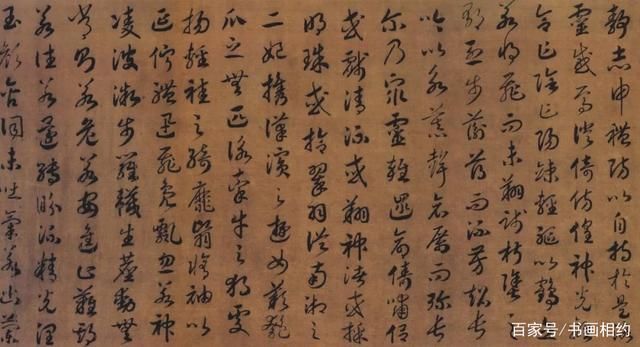 靜志申禮防以自持於是洛
靈感焉徙倚彷徨神光離
合乍陰乍陽竦輕軀以鶴立
若將飛而未翔踐椒塗之
郁烈步蘅薄而流芳超長
吟以永慕聲哀厲而彌長
爾乃衆靈雜遝命儔嘯侶
或戲清流或翔神渚或採
明珠或拾翠羽從南湘之
二妃攜漢濱之遊女歎匏
瓜之無匹詠牽牛之獨處
揚輕袿之猗靡翳脩袖以
延佇體迅飛鳧飄忽若神
凌波微步羅襪生塵動無
常則若危若安進止難期
若往若還轉眄流精光潤
玉顏含詞未吐氣若幽蘭
百家号/书画相约